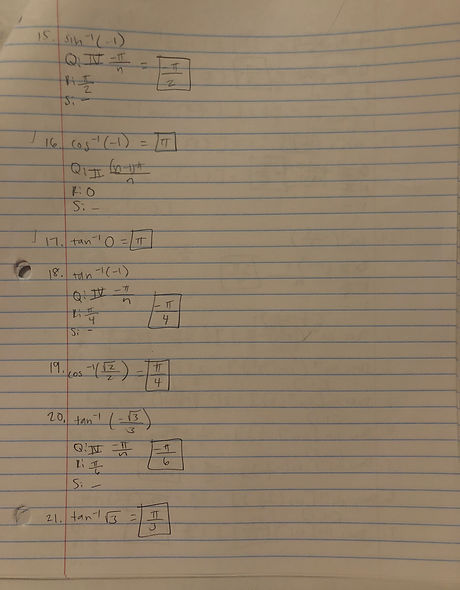 15. sin⁻¹(-1)
Q: IV -π/n = -π/2
R: π/2
S: -
16. cos⁻¹(-1) = π
Q: II (n-1)π/n
R: 0
S: -
17. tan⁻¹ 0 = π
18. tan⁻¹(-1)
Q: IV -π/n
R: π/4 -π/4
S: -
19. cos⁻¹(√2/2) = π/4
20. tan⁻¹(-√3/3)
Q: IV -π/n -π/6
R: π/6
S: -
21. tan⁻¹ √3 = π/3